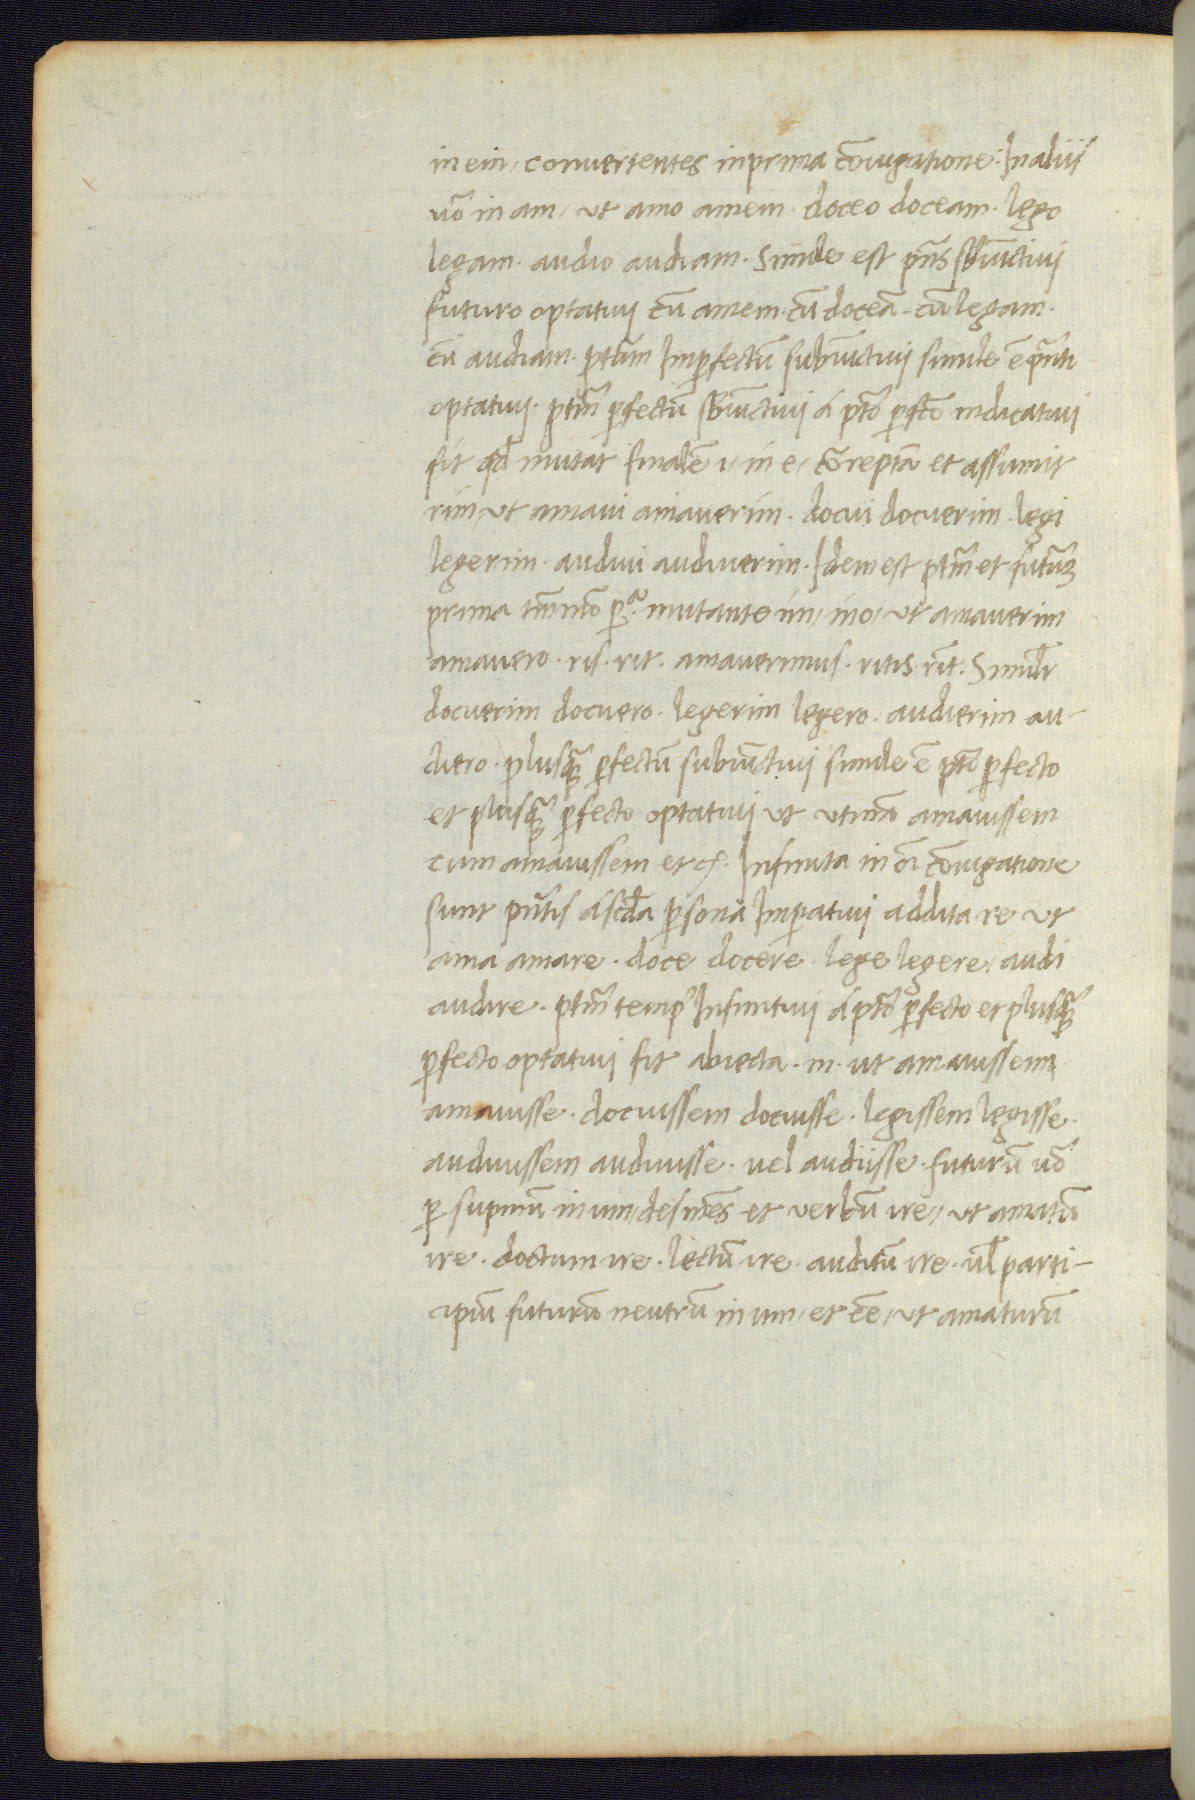 in em, convertentes in prima cõiugatione. In aliis
uõ in am, ut amo amem. doceo doceam. lego
legam. audio audiam. Simile est pñs sbĩuctiui
futuro optatiui cũ amem. cũ doceã. cũ legam.
cũ audiam. ptũm Impfectũ subiũctiui simile ẽ pñti
optatiui. ptm̃ pfectũ sbiũctiui á ptõ pfcõ indicatiui
fit qd̃ mutat finalẽ i, in e, correptã et assumit
rim ut amaui amauerim. docui docuerim. legi
legerim. audiui audiuerim. Idem est ptm̃ et futuȓ
prima tm̃mõ p.ª mutante im, in o, ut amauerim
amauero. ris. rit. amauerimus. ritis rĩt. Simil̃r
docuerim docuero. legerim legero. audierim au-
diero. plusq̃ pfectũ subiũctiui simile ẽ ptõ pfecto
et plusq̃ pfecto optatiui ut utinã amauissem
cum amauissem et c. Infinita in oĩ cõiugatione
sunt pñtis á scd̃a psona Impatiui addita re ut
ama amare. doce docere. lege legere. audi
audire. ptm̃ temp' Infinitiui á ptõ pfecto et plusq̃
pfecto optatiui fit abiecta. m. ut amauissem
amauisse. docuissem docuisse. legissem legisse.
audiuissem audiuisse. uel audiisse. futurũ uõ
p supinũ in um, desinẽs et verbũ ire, ut amatũ
ire. doctum ire. lectũ ire. auditũ ire. ul̃ parti-
cipiũ futurũ neutrũ in um, et eẽ, ut amaturũ